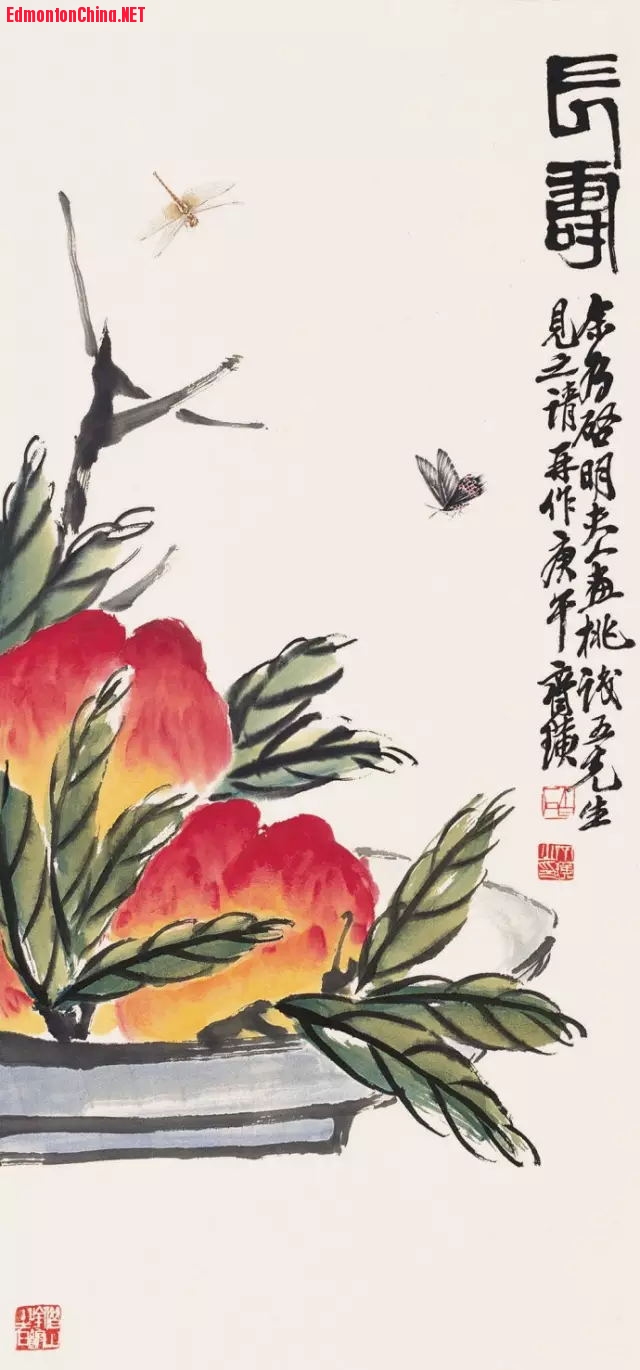 EdmontonChina.NET
長壽
余为啓明夫人画桃识五先生
見之請再作庚午齊璜